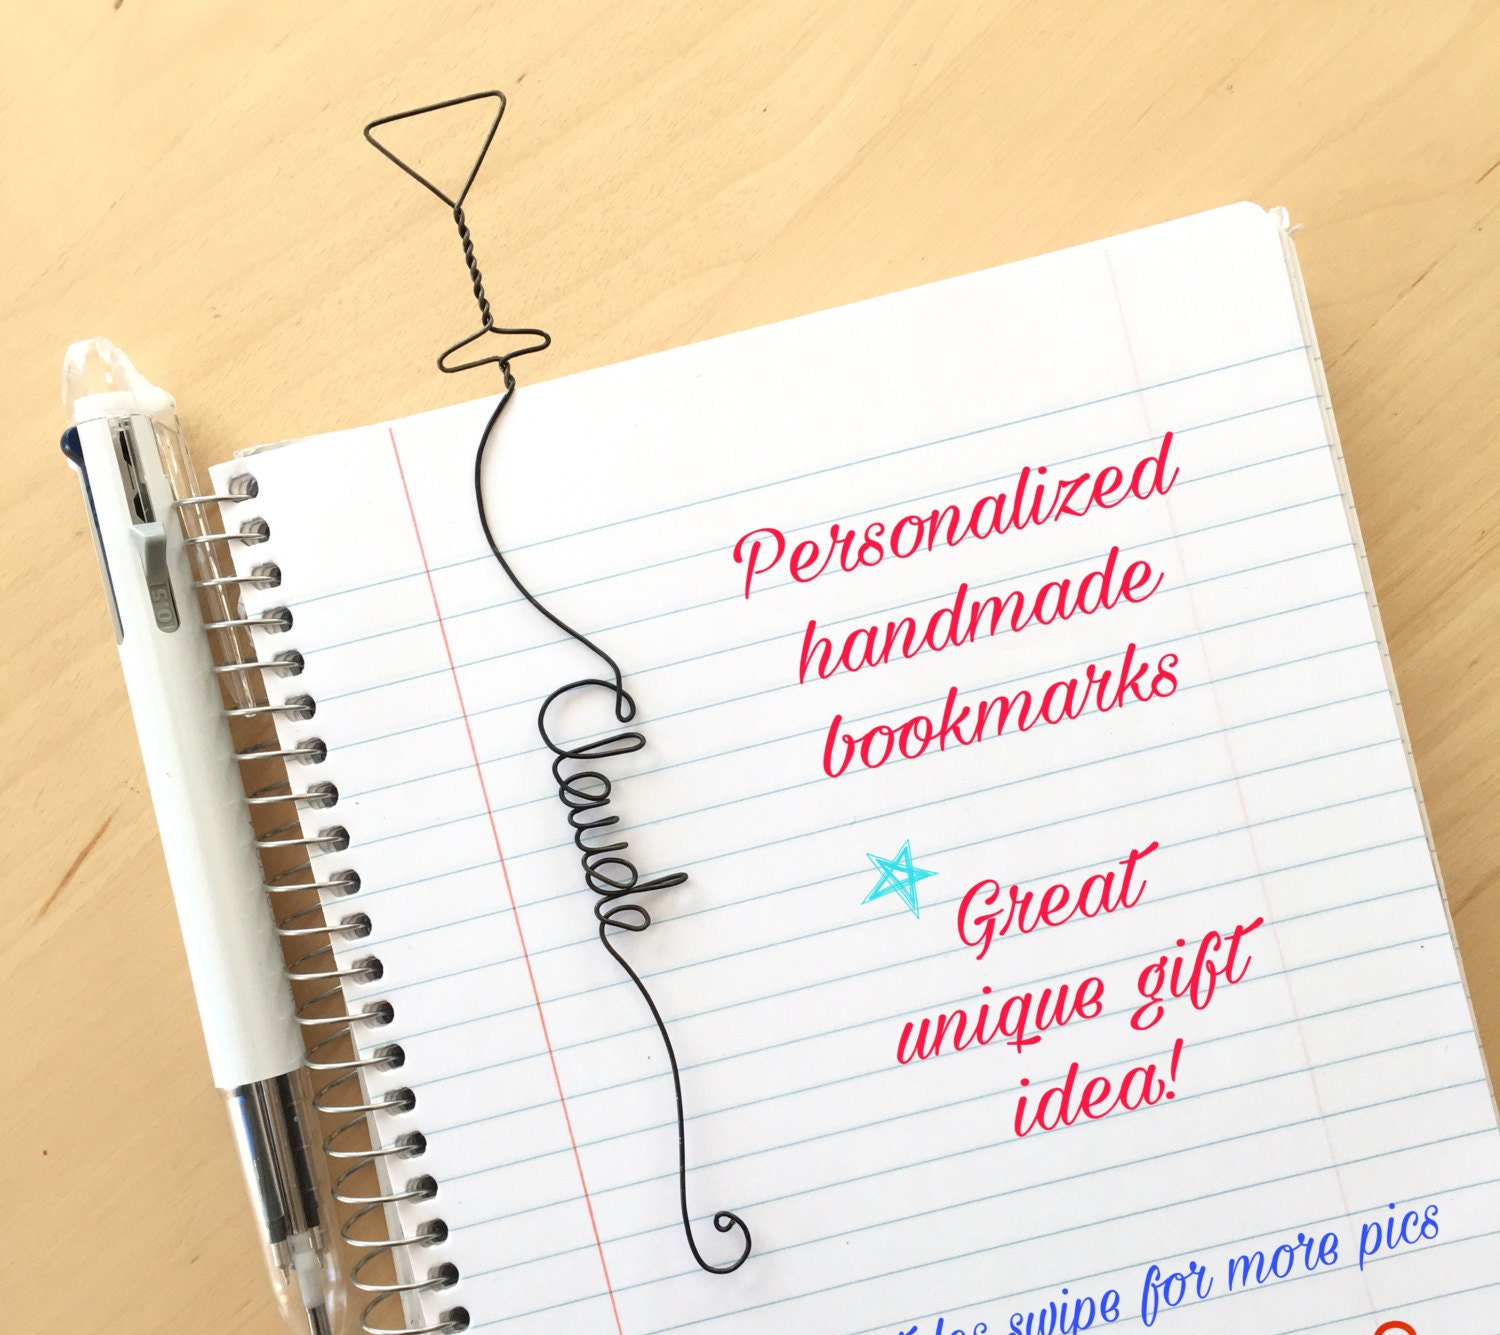 0.5
Claude
Personalized
handmade
bookmarks
Great
unique gift
idea!
swipe for more pics